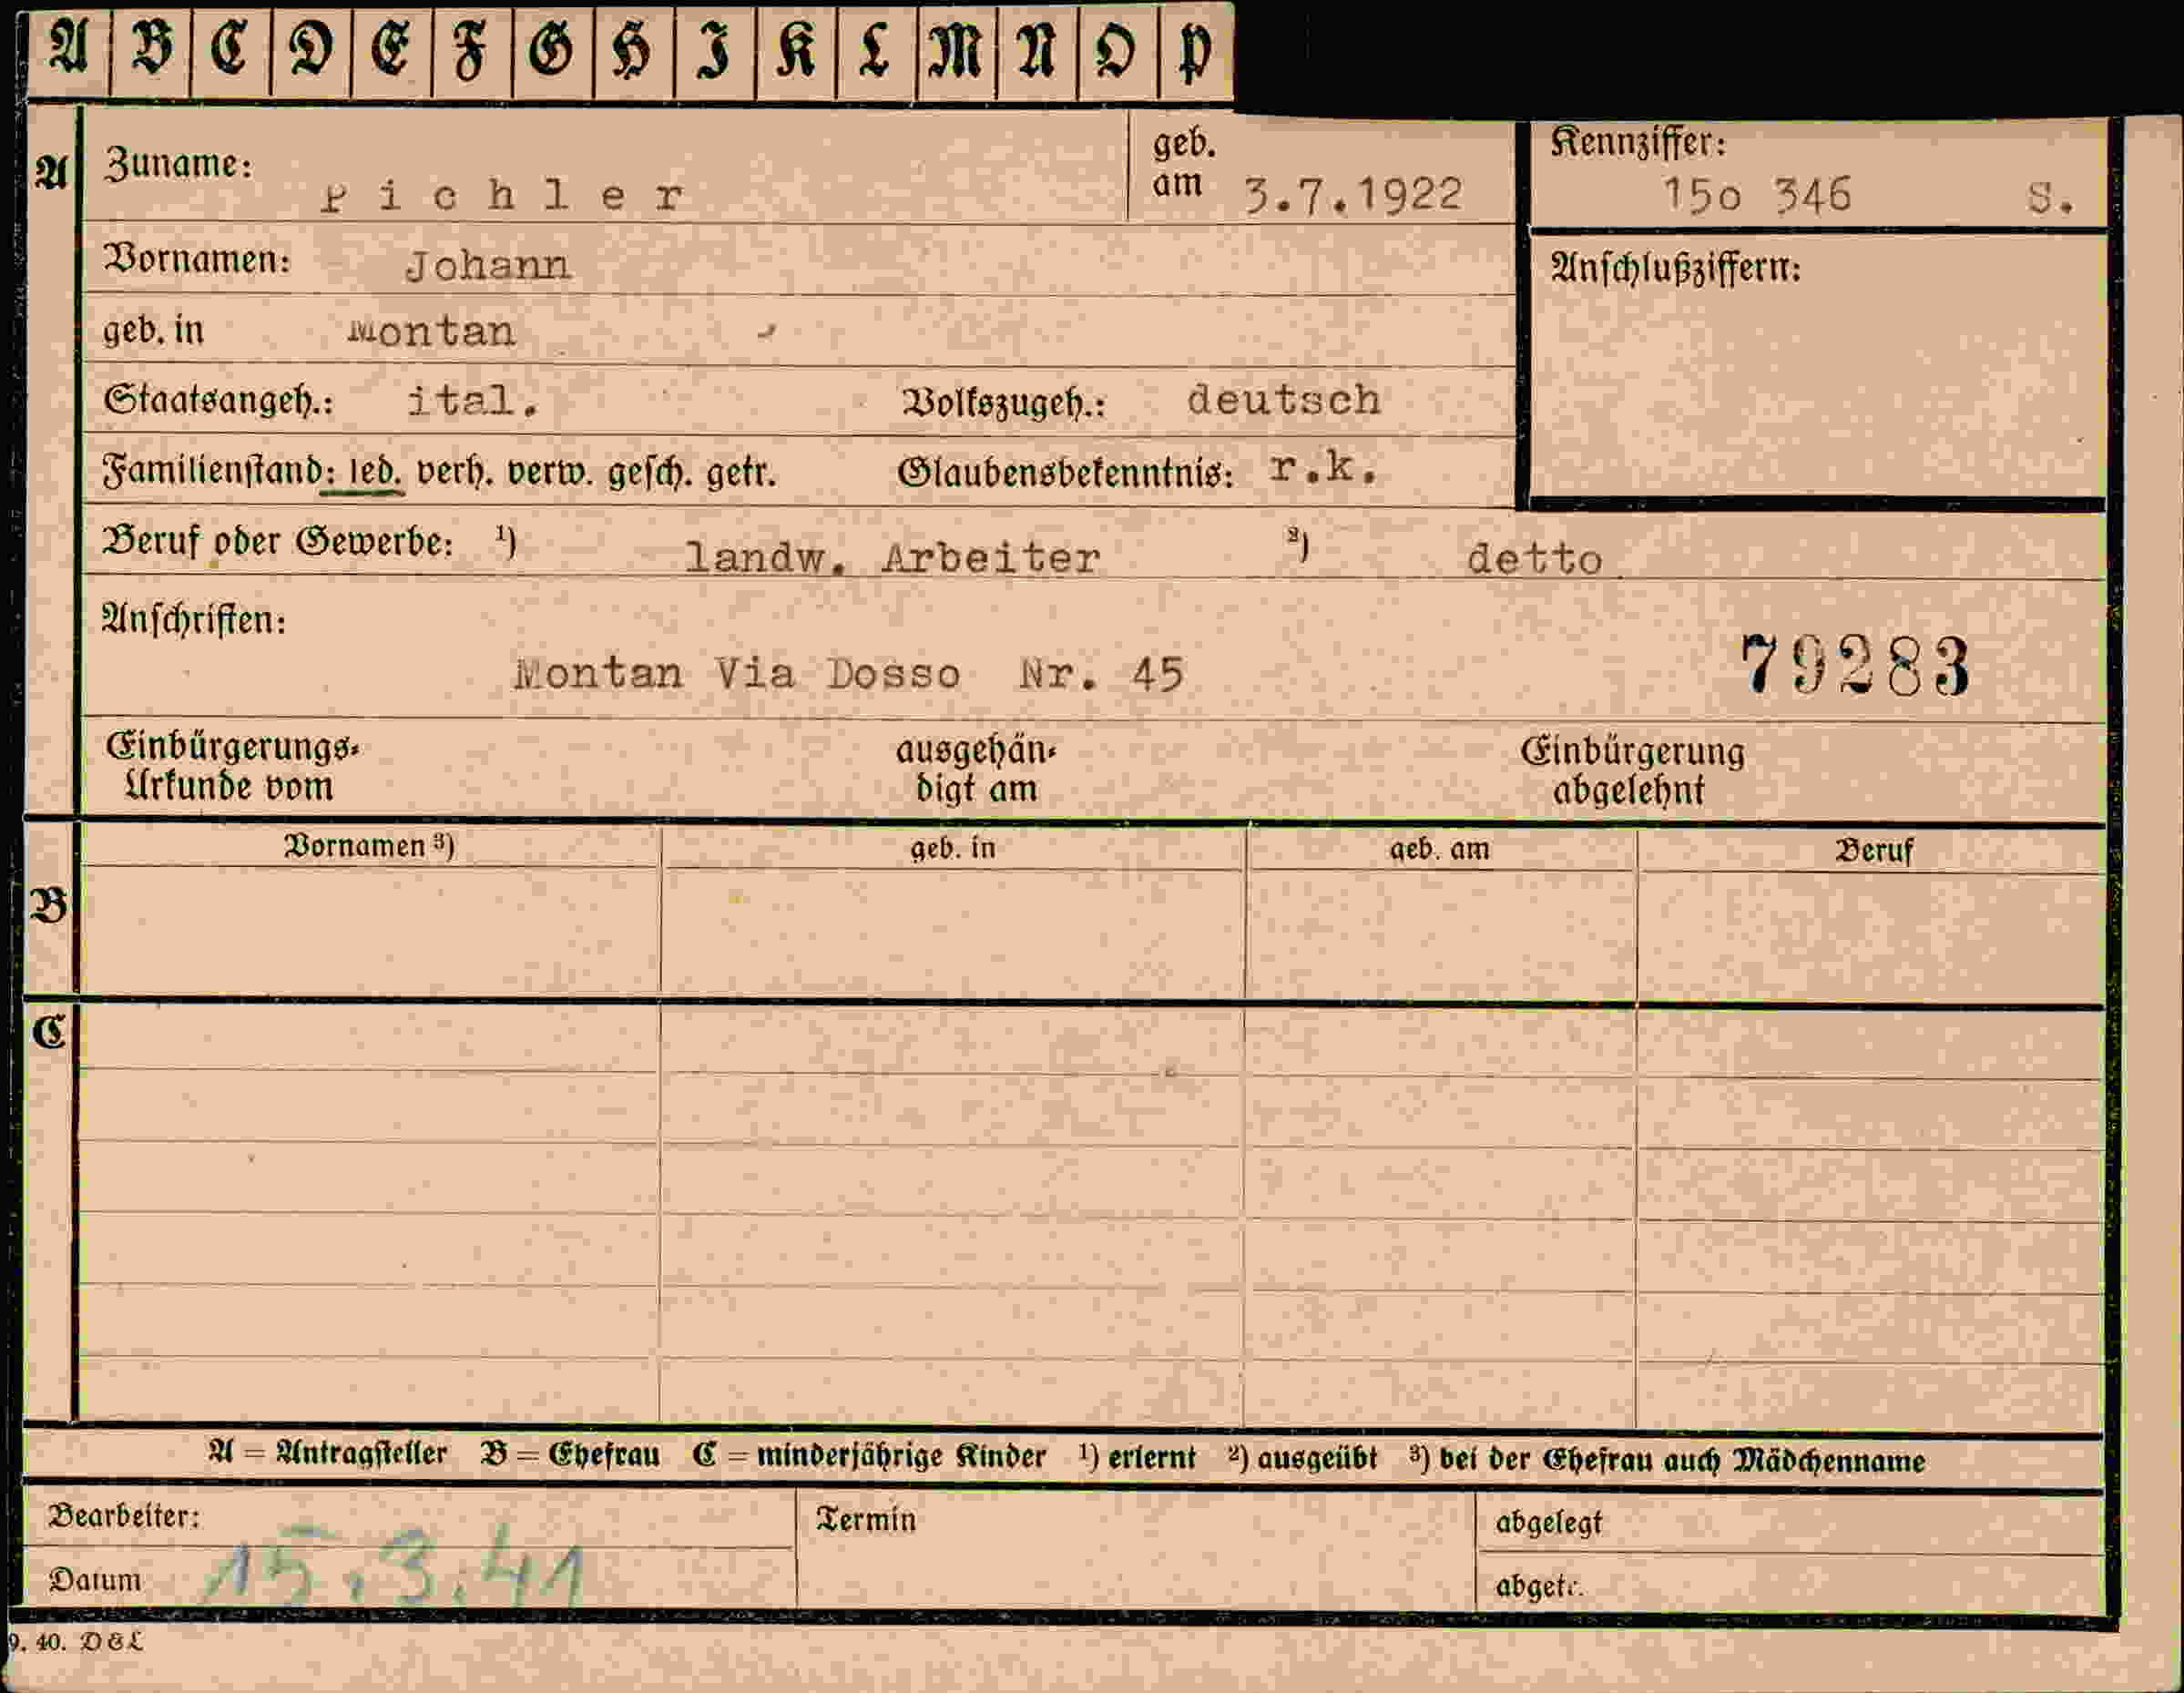 A B C D E F G H I K L M N O P
A Zuname: Pichler geb. am 3.7.1922 Kennziffer: 15o 346 S.
Vornamen: Johann Anschlußziffern:
geb. in Montan
Staatsangeh.: ital. Volkszugeh.: deutsch
Familienstand: led. verh. verw. gesch. getr. Glaubensbekenntnis: r.k.
Beruf oder Gewerbe: 1) landw. Arbeiter 2) detto
Anschriften:
Montan Via Dosso Nr. 45 79283
Einbürgerungs- ausgehän- Einbürgerung
Urkunde vom digt am abgelehnt
Vornamen 3) geb. in geb. am Beruf
B
C
A = Antragsteller B = Ehefrau C = minderjährige Kinder 1) erlernt 2) ausgeübt 3) bei der Ehefrau auch Mädchenname
Bearbeiter: Termin abgelegt
Datum 15.3.41 abgetr.
9. 40. D&L